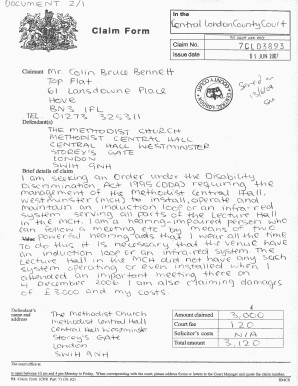 DOCUMENT 2/1
In the
Central London County Court
Claim Form
for court use only
Claim No. 7CL03893
Issue date 01 JUN 2007
Claimant Mr Colin Bruce Bennett
Top Flat
61 Lansdowne Place
Hove
BN3 1FL
TEL 01273 325311
Defendant(s)
THE METHODIST CHURCH
METHODIST CENTRAL HALL
CENTRAL HALL WESTMINSTER
STOREY'S GATE
LONDON
SW1H 9NH
Brief details of claim
I am seeking an Order under the Disability
Discrimination Act 1995 (DDA) requiring the
management of the Methodist Central Hall,
Westminster (MCH) to install, operate and
maintain an induction loop or an infra-red
system serving all parts of the Lecture Hall
in the MCH. I am a hearing-impaired person who
can follow a meeting etc by means of two
Powerful hearing aids that I wear all the time
Value
To do this it is necessary that the venue have
an induction loop or an infra-red system. The
Lecture Hall in the MCH did not have any such
system operating or even installed when I
attended an important meeting there on
4 December 2006. I am also claiming damages
of £3000 and my costs.
Defendant's
name and
address
The Methodist Church
Methodist Central Hall
Central Hall Westminster
Storey's Gate
London
SW1H 9NH
£
Amount claimed 3,000
Court fee 120
Solicitor's costs N/A
Total amount 3,120
The court office at
is open between 10 am and 4 pm Monday to Friday. When corresponding with the court, please address forms or letters to the Court Manager and quote the claim number.